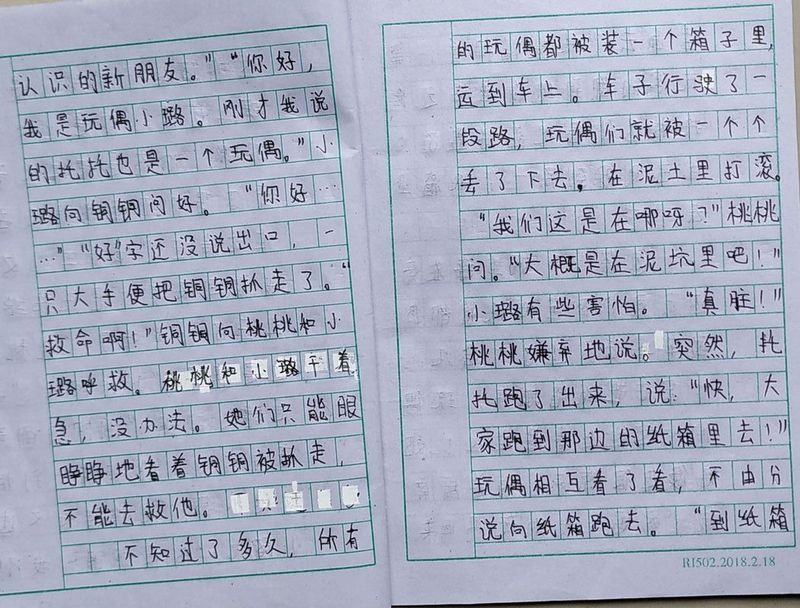 认识的新朋友。”“你好，
我是玩偶小璐。刚才我说
的托托也是一个玩偶。”小
璐向铜铜问好。“你好…
…”“好”字还没说出口，一
只大手便把铜铜抓走了。“
救命啊！”铜铜向桃桃和小
璐呼救。桃桃和小璐干着
急，没办法。她们只能眼
睁睁地看着铜铜被抓走，
不能去救他。
不知过了多久，所有
的玩偶都被装一个箱子里，
运到车上。车子行驶了一
段路，玩偶们就被一个个
丢了下去，在泥土里打滚。
“我们这是在哪呀？”桃桃
问。“大概是在泥坑里吧！”
小璐有些害怕。“真脏！”
桃桃嫌弃地说。突然，托
托跑了出来，说：“快，大
家跑到那边的纸箱里去！”
玩偶相互看了看，不由分
说向纸箱跑去。“到纸箱
RI502.2018.2.18